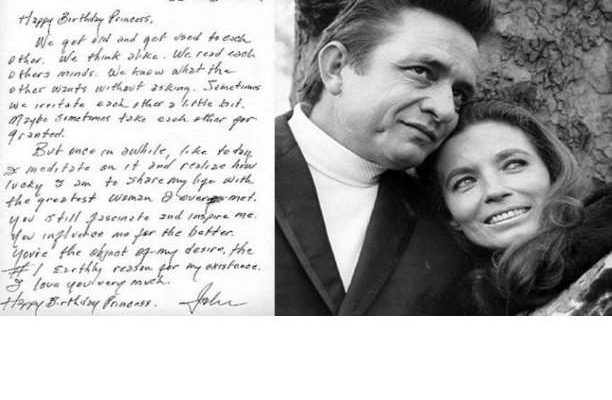 Happy Birthday Princess,
We get old and get used to each
other. We think alike. We read each
others minds. We know what the
other wants without asking. Sometimes
we irritate each other a little bit.
Maybe sometimes take each other for
granted.
But once in awhile, like today,
I meditate on it and realize how
lucky I am to share my life with
the greatest woman I ever met.
You still fascinate and inspire me.
You influence me for the better.
You're the object of my desire, the
#1 Earthly reason for my existence.
I love you very much.
Happy Birthday Princess.
John